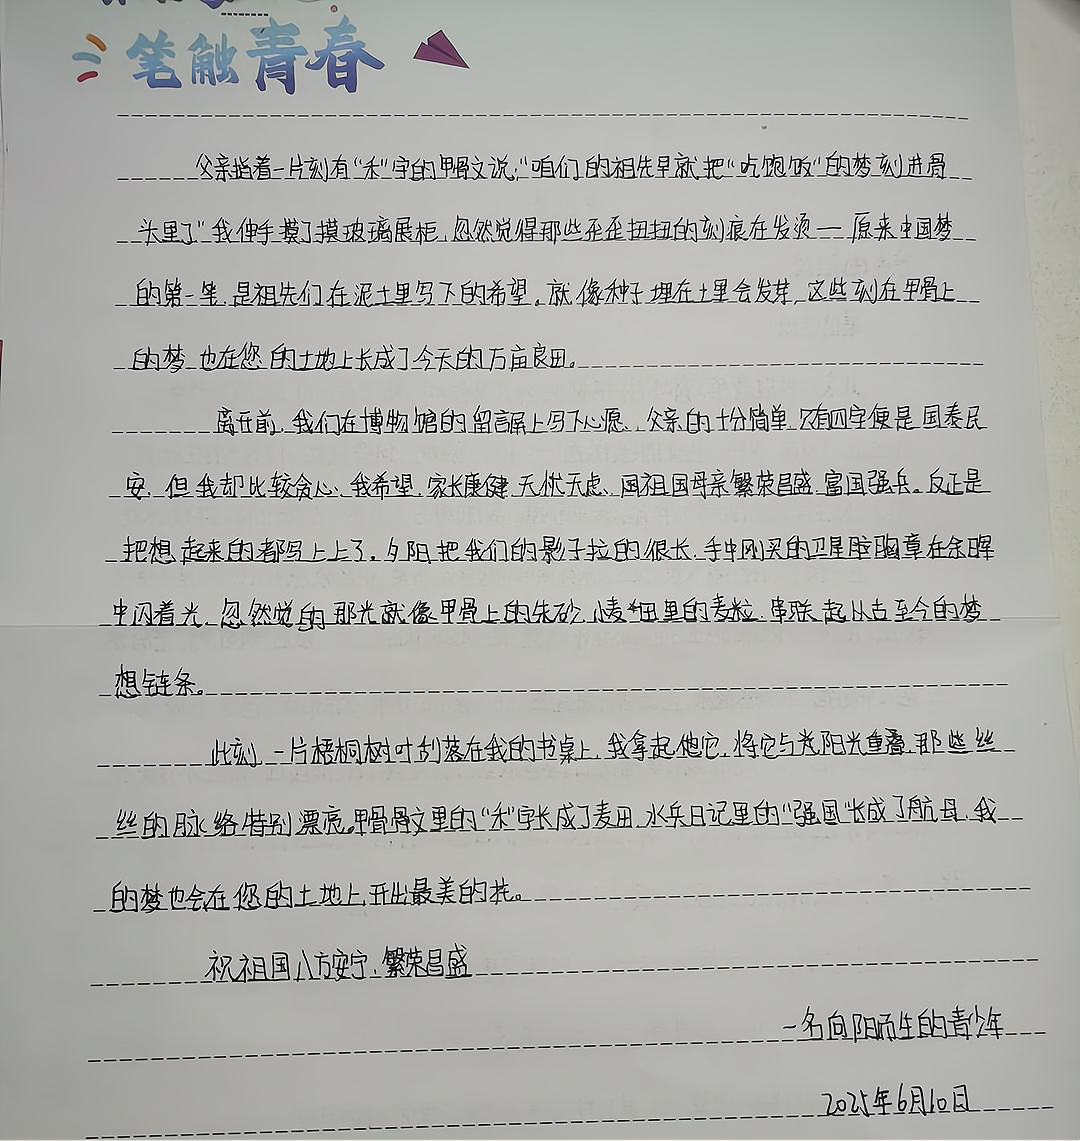 笔触青春
父亲指着一片刻有“禾”字的甲骨文说:“咱们的祖先早就把“吃饱饭”的梦刻进骨
头里了”我伸手摸了摸玻璃展柜,忽然觉得那些歪歪扭扭的刻痕在发烫——原来中国梦
的第一笔,是祖先们在泥土里写下的希望。就像种子埋在土里会发芽,这些刻在甲骨上
的梦也在您的土地上长成了今天的万亩良田。
离开前,我们在博物馆的留言屏上写下心愿、父亲的十分简单,只有四字便是国泰民
安,但我却比较贪心、我希望,家长康健无忧无虑、国祖国母亲繁荣昌盛,富国强兵。反正是
把想起来的都写上上了。夕阳把我们的影子拉的很长,手中刚买的卫星胸章在余晖
中闪着光,忽然觉的那光就像甲骨上的朱砂,麦田里的麦粒,串联起从古至今的梦
想链条。
此刻,一片梧桐树叶刮落在我的书桌上,我拿起他它,将它与光阳光重叠,那些丝
丝的脉络特别漂亮。甲骨骨文里的“禾”字长成了麦田,水兵日记里的“强国”长成了航母,我
的梦也会在您的土地上,开出最美的花。
祝祖国八方安宁,繁荣昌盛
一名向阳而生的青少年
2025年6月10日